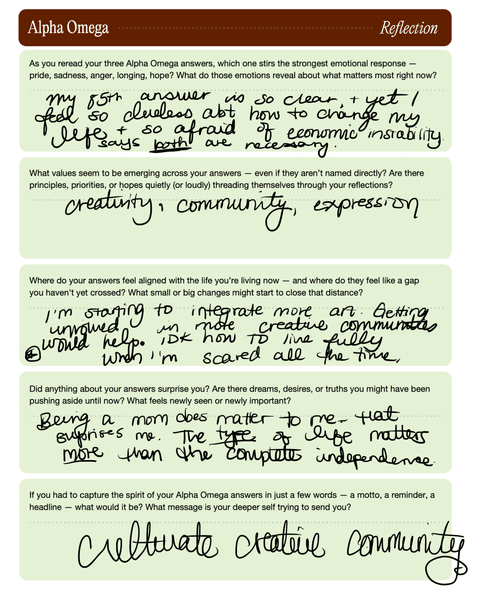 Alpha Omega
Reflection
As you reread your three Alpha Omega answers, which one stirs the strongest emotional response —
pride, sadness, anger, longing, hope? What do those emotions reveal about what matters most right now?
my 85th answer is so clear + yet I
feel so clueless abt how to change my
life + so afraid of economic instability.
says both are necessary.
What values seem to be emerging across your answers — even if they aren't named directly? Are there
principles, priorities, or hopes quietly (or loudly) threading themselves through your reflections?
creativity, community, expression
Where do your answers feel aligned with the life you're living now — and where do they feel like a gap
you haven't yet crossed? What small or big changes might start to close that distance?
I'm starting to integrate more art. Getting
involved in more creative communities
would help. IDK how to live fully
when I'm scared all the time.
Did anything about your answers surprise you? Are there dreams, desires, or truths you might have been
pushing aside until now? What feels newly seen or newly important?
Being a mom does matter to me - that
surprises me. The type of life matters
more than the complete independence.
If you had to capture the spirit of your Alpha Omega answers in just a few words — a motto, a reminder, a
headline — what would it be? What message is your deeper self trying to send you?
cultivate creative community